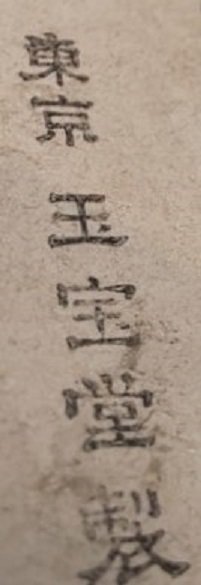 東京玉宝堂製